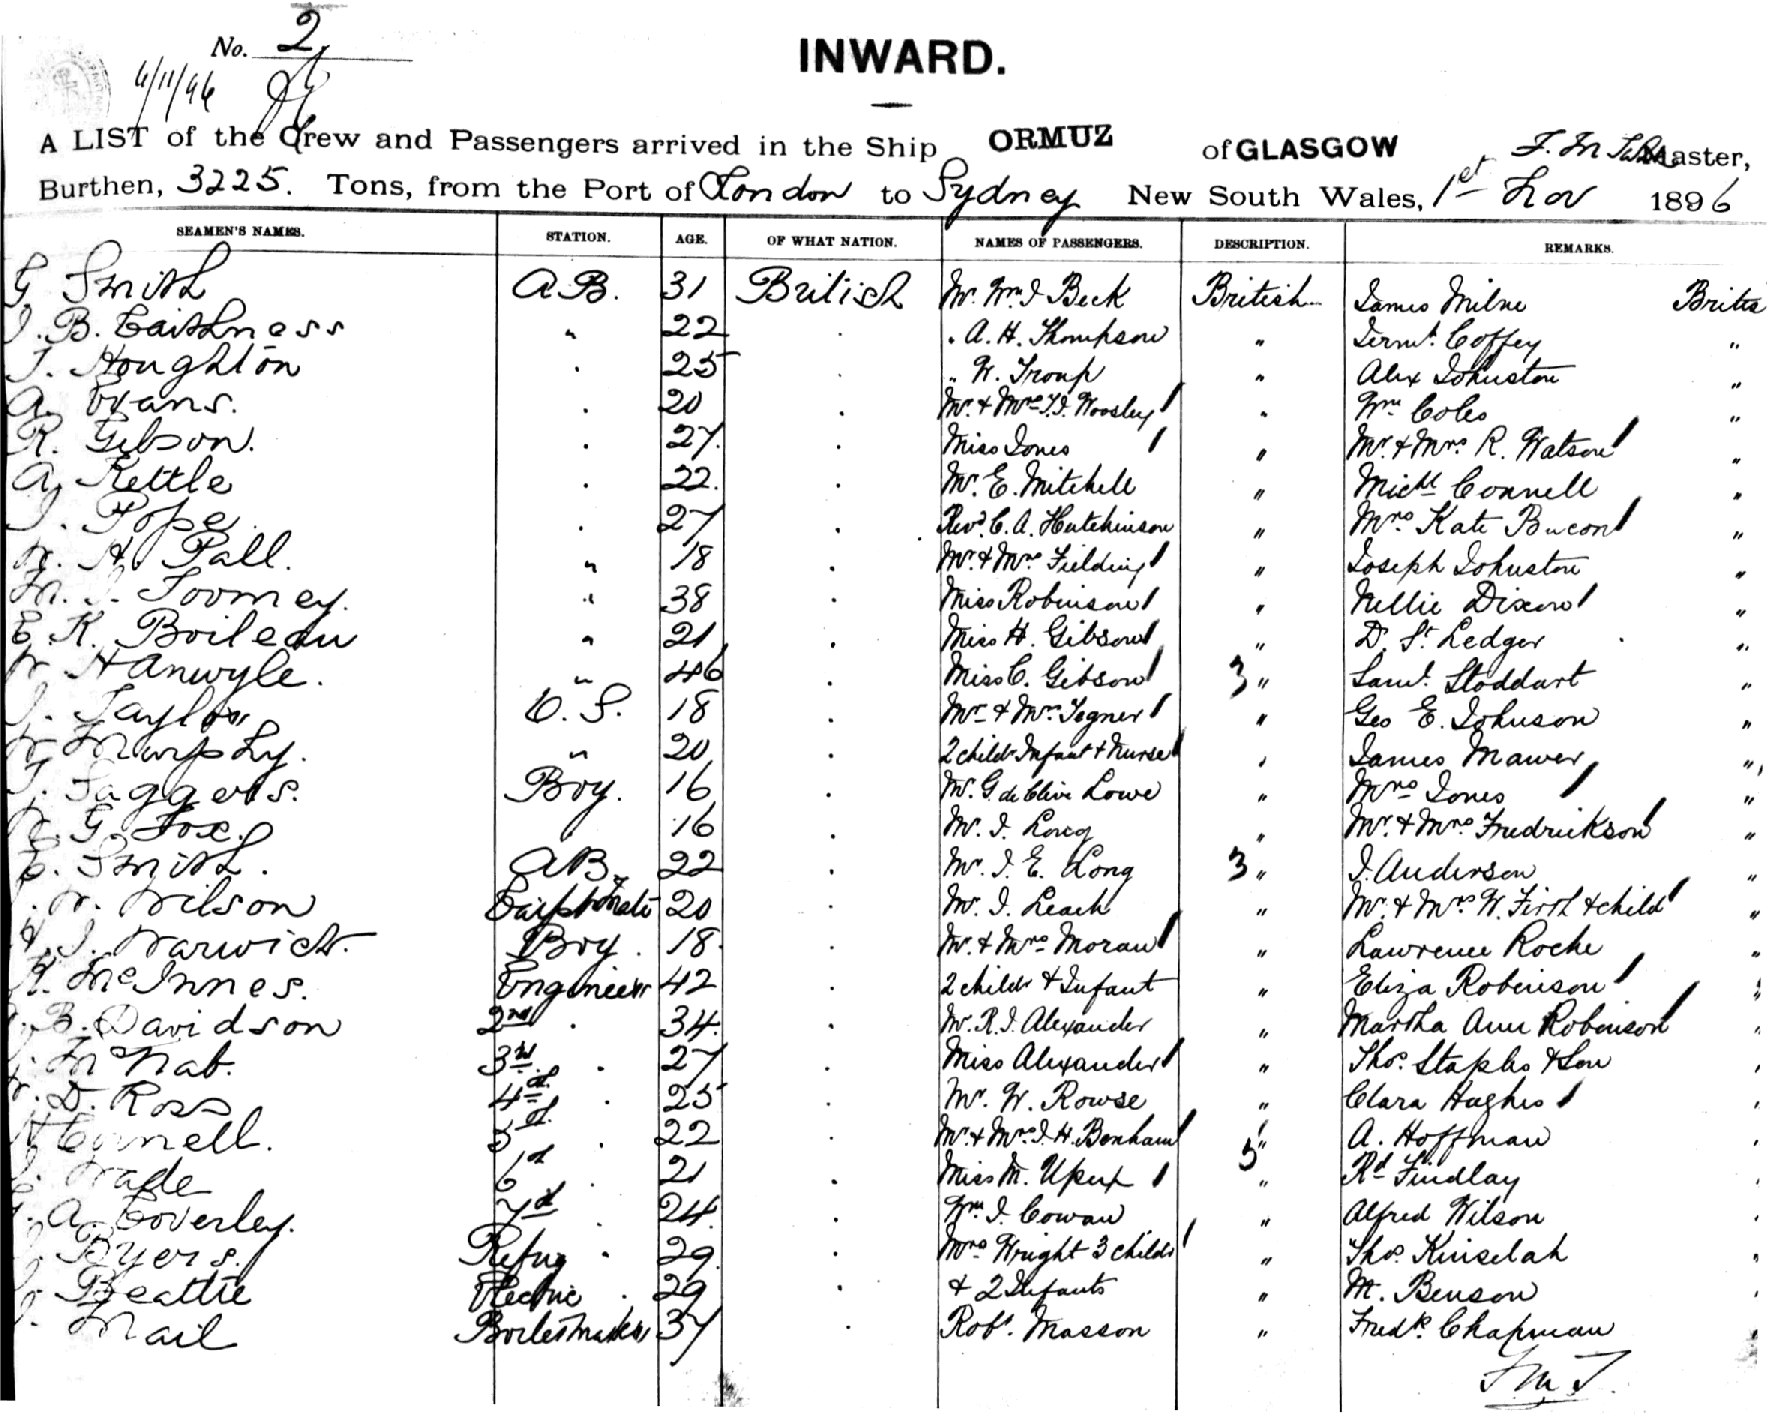 No. 2
4/11/96
INWARD.
A LIST of the Crew and Passengers arrived in the Ship ORMUZ of GLASGOW Master,
Burthen, 3225. Tons, from the Port of London to Sydney New South Wales, 1st Nov 1896
SEAMEN'S NAMES. STATION. AGE. OF WHAT NATION. NAMES OF PASSENGERS. DESCRIPTION. REMARKS.
G Smith A.B. 31 British Mr. Wm J Beck British James Milne Britis
J. B. Caithness " 22 " A. H. Thompson " Dermt. Coffey "
T. Houghton 25 " W. Troup " Alex Johnston "
A. Evans. 20 Mr. & Mrs T. J. Woosley " Wm Coles "
R. Gibson. 27. Miss Jones " Mr. & Mrs. R. Watson "
A. Kettle 22. Mr. E. Mitchell " Michl Connell "
J. Pope. 27 Revd. C. A. Hutchinson " Mrs Kate Bucon "
W. H. Pall. " 18 Mr. & Mrs Fielding " Joseph Johnston "
M. J. Toomey. " 38 Miss Robinson " Nellie Dixon "
E. K. Boileau " 21 Miss H. Gibson " D. St. Ledger "
W Hanwyle. " 46 Miss C. Gibson 3 " Saml. Stoddart "
J. Taylor O. S. 18 Mr & Mrs Tegner " Geo E. Johnson "
W Murphy. " 20 2 childr Infant & Nurse " James Mawer "
T. Saggers. Boy. 16 Mr. G. de Clive Lowe " Mrs Jones "
W. G. Fox. 16 Mr. J. Long " Mr. & Mrs Fredrickson "
E. Smith. A.B. 22 Mr. J. E. Long 3 " J. Anderson "
W. Wilson 20 Mr. J. Leach " Mr. & Mrs W. Firth & child "
J. Warwick. Boy. 18. Mr. & Mrs Moran " Lawrence Roche "
K. McInnes. Engineer 42 2 childr & Infant " Eliza Robinson "
B. Davidson 2nd 34. Mr. R. J. Alexander " Martha Ann Robinson "
J. McNab. 3rd 27 Miss Alexander " Thos. Staples & Son
W. D. Ross 4th 25 Mr. W. Rowse " Clara Hughes
Connell. 5th 22 Mr. & Mrs. J. H. Bonham 3 " A. Hoffman
Wade 6th 21 Miss M. " Rd Findlay
A. Coverley. 7th 24. Wm J. Cowan " Alfred Wilson
J. Byers. Refrig 29. Mrs Wright 3 childr " Thos. Kinselah
J. Beattie Electric 29 & 2 Infants " M. Benson
J. Mail Boilermaker 37 Robt. Masson " Fredk. Chapman
F M T.